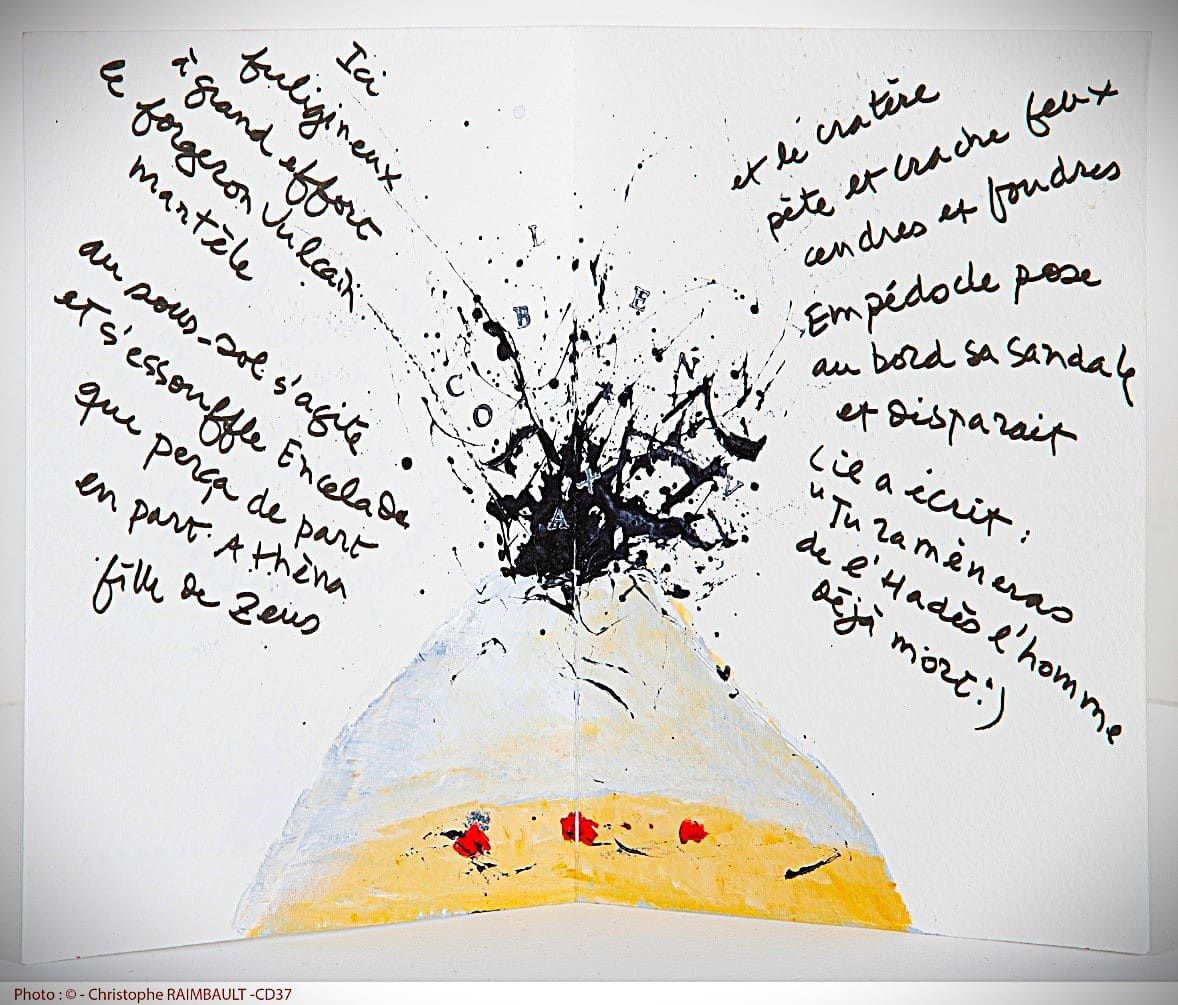 Ici
fuligineux
à grand effort
le forgeron Vulcain
martèle
au sous-sol s'agite
et s'essouffle Encelade
que perça de part
en part Athèna
fille de Zeus
et le cratère
pète et crache feux
cendres et foudres
Empédocle pose
au bord sa sandale
et disparait
(il a écrit :
"Tu ramèneras
de l'Hadès l'homme
déjà mort.")
L
B
E
C
O
N
A
V
Photo : © - Christophe RAIMBAULT -CD37